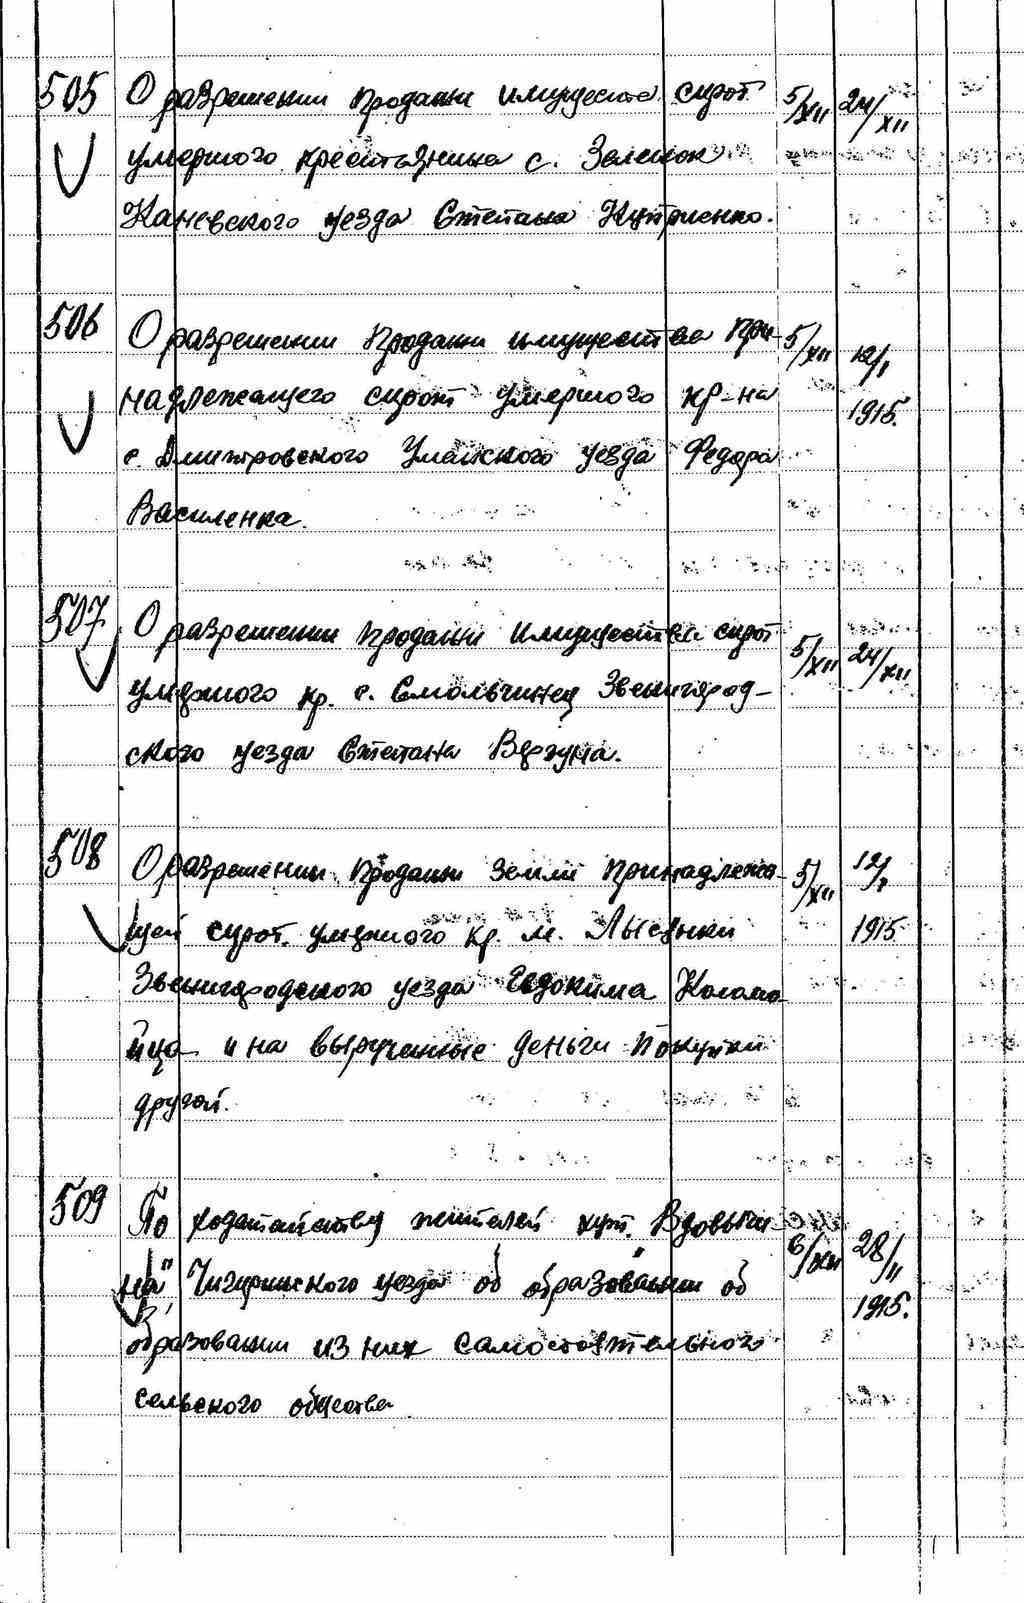 505 О разрешении продажи имущества сирот 5/XII 24/XII
умершого крестьянина с. Зеленок
Каневского уезда Степана Куприенко.
506 О разрешении продажи имущества при- 5/XII 12/I
надлежащего сирот умершого кр-на 1915.
с. Дмитровского Уманского уезда Федора
Василенка.
507 О разрешении продажи имущества сирот 5/XII 24/XII
умершого кр. с. Смольчинец Звенигород-
ского уезда Степана Вергуна.
508 О разрешении продажи земли принадлежа- 5/XII 12/I
щей сирот. умершого кр. м. Лысянки 1915
Звенигородского уезда Евдокима Коломо
йца и на вырученные деньги покупки
другой.
509 По ходатайству жителей хут. "Вдовычи 6/XII 28/II
на" Чигиринского уезда об образовании об 1915.
образовании из них самостоятельного
сельского общества